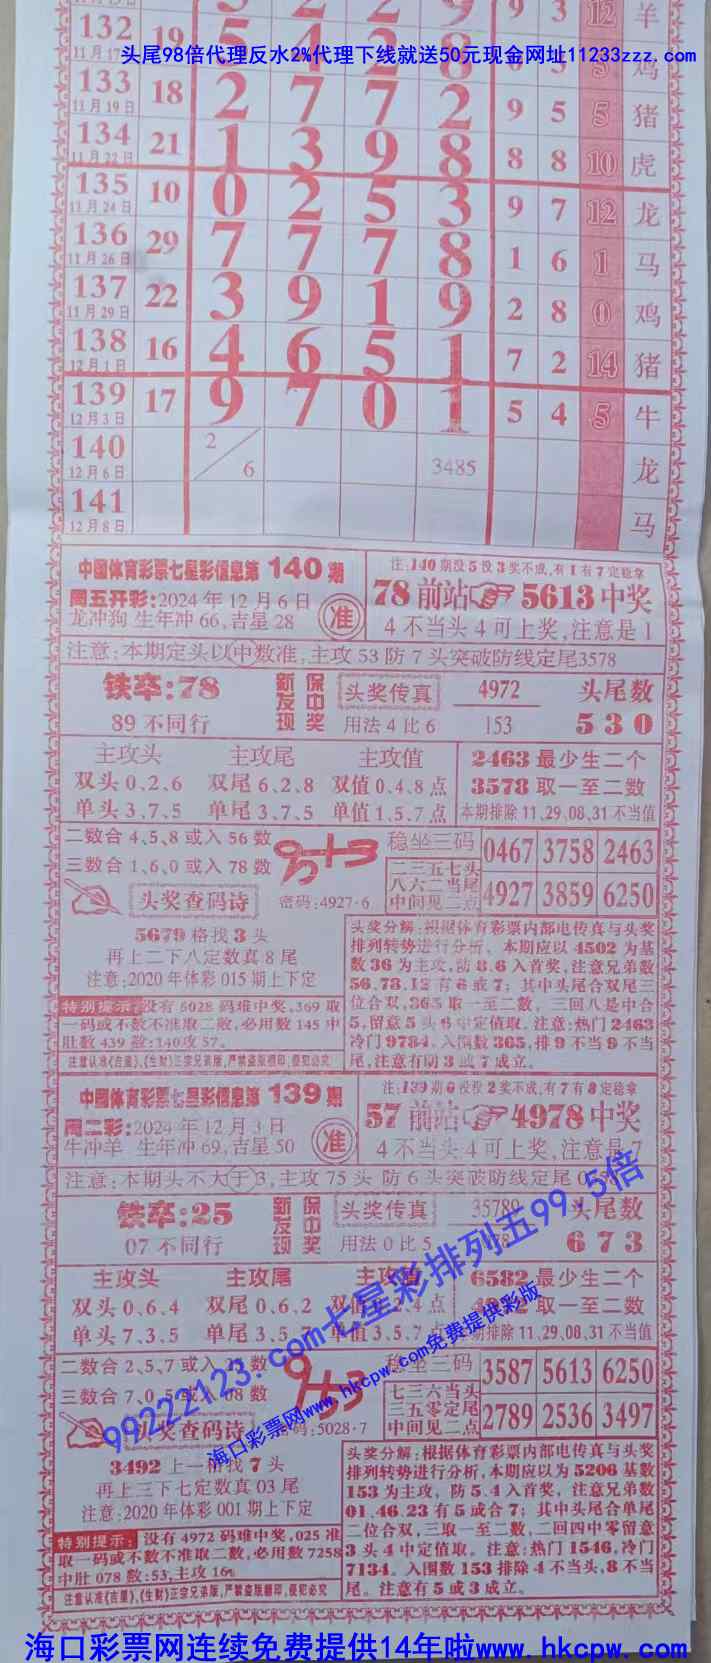 132 19 5 4 2 8 羊
11月17日
头尾98倍代理反水2%代理下线就送50元现金网址11233zzz.com
鸡
133 18 2 7 7 2 9 5 5 猪
11月19日
134 21 1 3 9 8 8 8 10 虎
11月22日
135 10 0 2 5 3 9 7 12 龙
11月24日
136 29 7 7 7 8 1 6 1 马
11月26日
137 22 3 9 1 9 2 8 0 鸡
11月29日
138 16 4 6 5 1 7 2 14 猪
12月1日
139 17 9 7 0 1 5 4 5 牛
12月3日
140 2/6 3485 龙
12月6日
141 马
12月8日
中国体育彩票七星彩信息第140期
周五开彩:2024年12月6日
龙冲狗 生年冲66,吉星28
准
注:140期没5投3奖不成,有1有7定稳拿
78前站 5613中奖
4不当头4可上奖,注意是1
注意:本期定头以中数准,主攻53防7头突破防线定尾3578
铁卒:78
89不同行
新发现 保中奖
头奖传真
用法4比6
4972
153
头尾数
530
主攻头 主攻尾 主攻值
双头0,2,6 双尾6,2,8 双值0,4,8点
单头3,7,5 单尾3,7,5 单值1,5,7点
2463最少生二个
3578取一至二数
本期排除11,29,08,31不当值
二数合4,5,8或入56数
三数合1,6,0或入78数
头奖查码诗
密码:4927·6
稳坐三码
二三五七头
八六二当尾
中间见二点
0467 3758 2463
4927 3859 6250
5679格找3头
再上二下八定数真8尾
注意:2020年体彩015期上下定
特别提示:没有5028码难中奖,369取
一码或不数不准取二数,必用数145中
肚数439数:140攻57。
注意认准《吉星》,《生财》正宗兄弟版,严禁盗版翻印,侵犯必究
头奖分解:根据体育彩票内部电传真与头奖
排列转势进行分析、本期应以4502为基
数36为主攻,防8.6入首奖,注意兄弟数
56,73,12有6或7;其中头尾合双尾三
位合双,365取一至二数,三回八是中合
5,留意5头6中定值取.注意:热门2463
冷门9784,入围数365,排9不当9不当
尾,注意有明3或7成立。
中国体育彩票七星彩信息第139期
周二彩:2024年12月3日
牛冲羊 生年冲69,吉星50
准
注:139期6没投2奖不成,有7有8定稳拿
57前站 4978中奖
4不当头4可上奖,注意是7
注意:本期头不大于3,主攻75头防6头突破防线定尾0
铁卒:25
07不同行
新发现 保中奖
头奖传真
用法0比5
35789
头尾数
673
主攻头 主攻尾
双头0,6,4 双尾0,6,2
单头7,3,5 单尾3,5,7 单值3,5,7点
6582最少生二个
取一至二数
本期排除11,29,08,31不当值
二数合2,5,7或入
三数合7,0,5或入08数
头奖查码诗
密码:5028·7
稳坐三码
七三六当头
三五零定尾
中间见二点
3587 5613 6250
2789 2536 3497
3492上一格找7头
再上三下七定数真03尾
注意:2020年体彩001期上下定
特别提示:没有4972码难中奖,025准
取一码或不数不准取二数,必用数7258
中肚078数:53,主攻16。
注意认准《吉星》,《生财》正宗兄弟版,严禁盗版翻印,侵犯必究
头奖分解:根据体育彩票内部电传真与头奖
排列转势进行分析,本期应以为5206基数
153为主攻,防5.4入首奖,注意兄弟数
01,46,23有5或合7;其中头尾合单尾
二位合双,三取一至二数,二回四中零留意
3头4中定值取。注意:热门1546,冷门
7134。入围数153排除4不当头,8不当
尾。注意有5或3成立。
99222123.com七星彩排列五99.5倍
海口彩票网www.hkcpw.com免费提供彩版
海口彩票网连续免费提供14年啦www.hkcpw.com